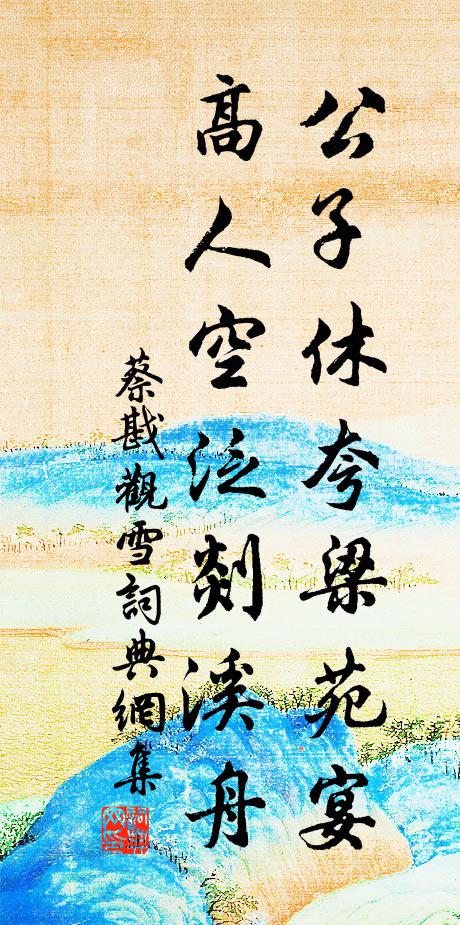 公子休夸梁苑宴
高人空泛剡溪舟
蔡戡觀雪詞典網集